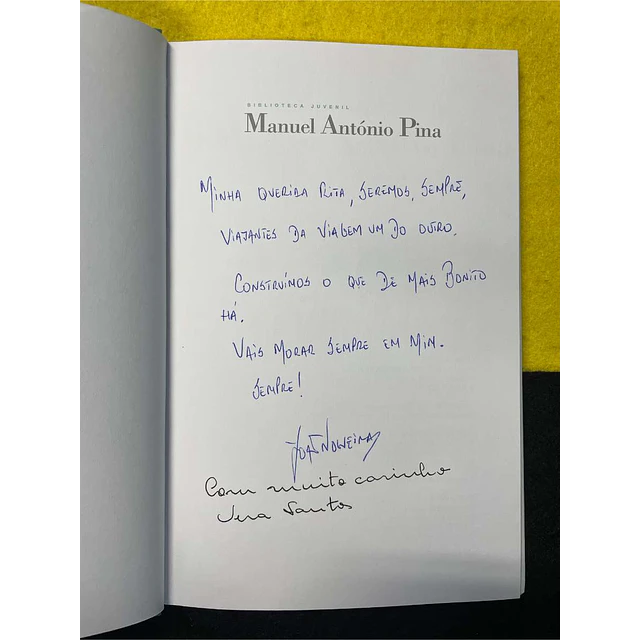 BIBLIOTECA JUVENIL
Manuel António Pina
MINHA QUERIDA RITA, SEREMOS, SEMPRE,
VIAJANTES DA VIAGEM UM DO OUTRO.
CONSTRUÍMOS O QUE DE MAIS BONITO
HÁ.
VAIS MORAR SEMPRE EM MIM.
SEMPRE!
Com muito carinho
Santos